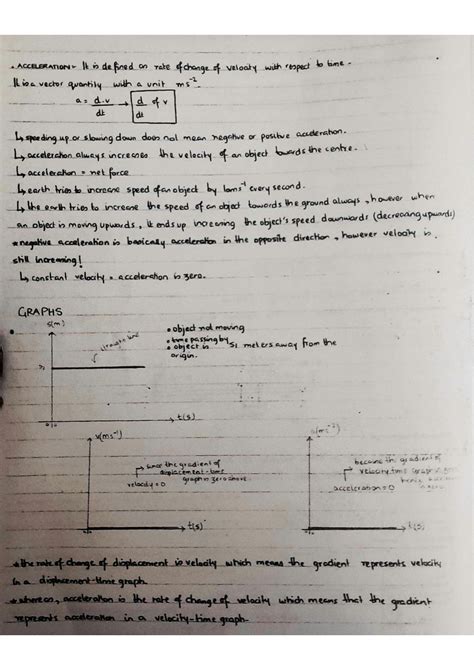 . ACCELERATION:- It is defined as rate of change of velocity with respect to time.
It is a vector quantity with a unit ms⁻²
a = d.v → d of v
dt dt
↳ speeding up or slowing down does not mean negative or positive acceleration.
↳ acceleration always increases the velocity of an object towards the centre.
↳ acceleration = net force
↳ earth tries to increase speed of an object by 10ms⁻¹ every second.
↳ the earth tries to increase the speed of an object towards the ground always, however when
an object is moving upwards, it ends up increasing the object's speed downwards (decreasing upwards)
* negative acceleration is basically acceleration in the opposite direction, however velocity is
still increasing!
↳ constant velocity = acceleration is zero.
GRAPHS
s(m)
straight line
• object not moving
• time passing by
• object is S₁ meters away from the
origin.
S₁
t(s)
v(ms⁻¹)
since the gradient of
displacement-time
graph is zero above.
velocity = 0
t(s)
a(ms⁻²)
because the gradient of
velocity time graph is
acceleration = 0
t(s)
* the rate of change of displacement is velocity which means the gradient represents velocity
in a displacement-time graph.
* whereas, acceleration is the rate of change of velocity which means that the gradient
represents acceleration in a velocity-time graph.